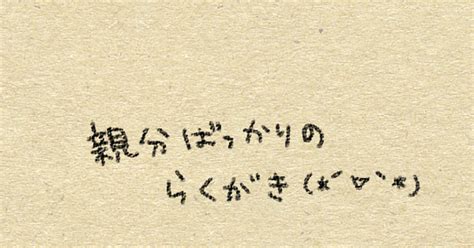 親分ばっかりの
らくがき(*´▽`*)